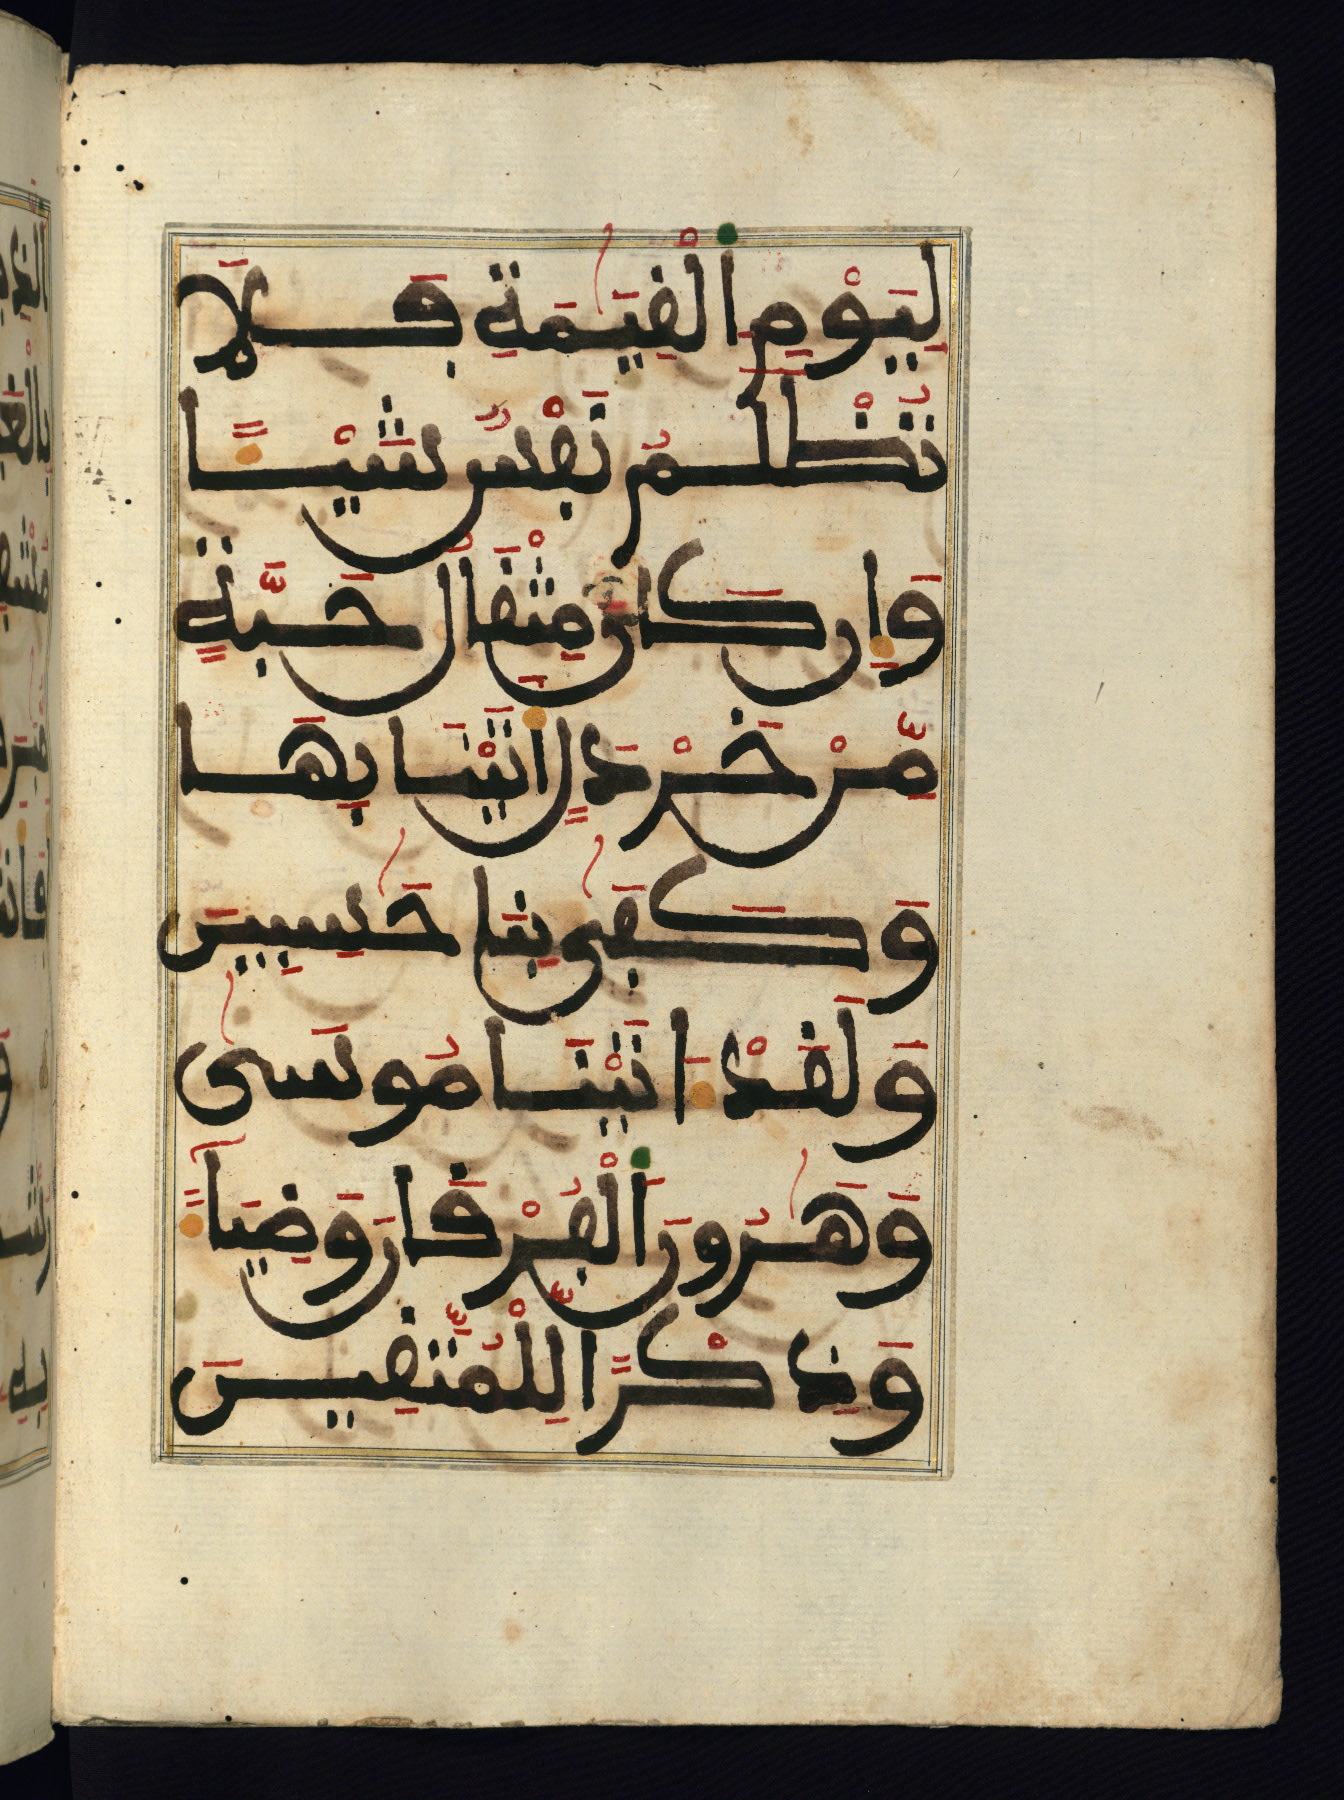 لِيَوْمِ اِ۬لْقِيَٰمَةِ فَلَا
تُظْلَمُ نَفْسٞ شَيْـٔاٗ
وَإِن كَانَ مِثْقَالُ حَبَّةٖ
مِّنْ خَرْدَلٍ اَتَيْنَا بِهَا
وَكَفَىٰ بِنَا حَٰسِبِينَ
وَلَقَدْ ءَاتَيْنَا مُوسَىٰ
وَهَٰرُونَ اَ۬لْفُرْقَانَ وَضِيَآءٗ
وَذِكْراٗ لِّلْمُتَّقِينَ